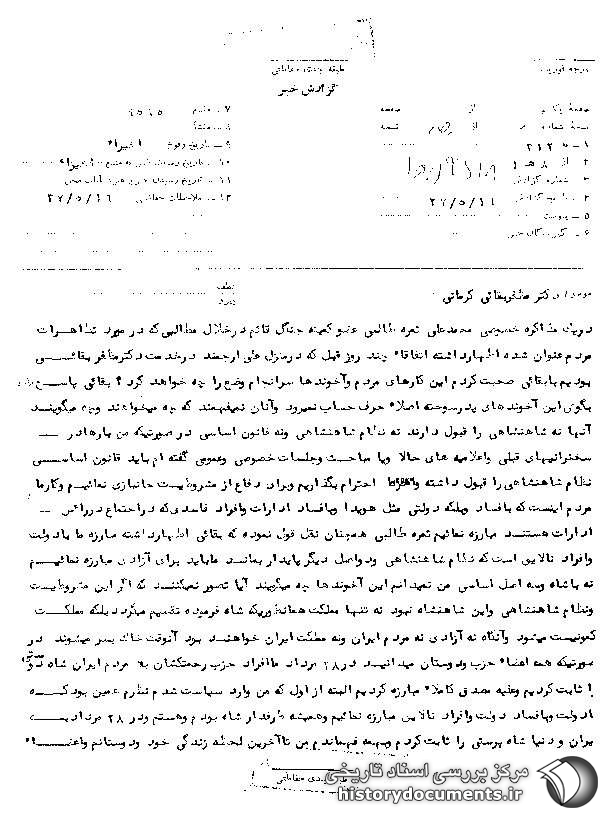 طبقه بندی حفاظتی
درجه فوریت
گزارش خبر
صفحه یکم از صفحه
نسخه شماره از نسخه
۷ – منبع
۸ – منشأ
۹ – تاریخ وقوع اخیرا"
۱۰ – تاریخ رسیدن خبر به منبع اخیرا"
۱۲ – ملاحظات حفاظتی
۳ – شماره گزارش
۴ – تاریخ گزارش
۵ – پیوست
۶ – گیرندگان خبر
موضوع : دکتر مظفر بقائی کرمانی
در یک مذاکره خصوصی محمدعلی ثمره طالبی عضو کمیته جنگل قائم در خلال مطالبی که در مورد تظاهرات
مردم عنوان شده اظهار داشته اتفاقا" چند روز قبل که در منزل علی ارجمند در خدمت دکتر مظفر بقائی
بودیم با بقائی صحبت کردم این کارهای مردم و آخوندها سرانجام وضع را چه خواهد کرد ؟ بقائی پاسخ داد
بگوی این آخوندهای پدرسوخته اصلا" حرف حساب نمیرود و آنان نمیفهمند که چه میخواهند و چه میگویند
آنها نه شاهنشاهی را قبول دارند نه نظام شاهنشاهی و نه قانون اساسی در صورتیکه من بارها در
سخنرانیهای قبلی و اعلامیه های حالا و یا مباحث و جلسات خصوصی و عمومی گفته ام باید قانون اساسی
نظام شاهنشاهی را قبول داشته و احترام بگذاریم و برای دفاع از مشروطیت جانبازی نمائیم و کار ما
مردم اینست که با فساد و بلکه دولتی مثل هویدا و با فساد ادارات و افراد فاسدی که در اجتماع در رأس
ادارات هستند مبارزه نمائیم ثمره طالبی همچنان نقل قول نموده که بقائی اظهار داشته مبارزه ما با دولت
و افراد نالایق است که نظام شاهنشاهی و دو اصل دیگر پایدار بماند ما باید برای آزادی مبارزه نمائیم
نه با شاه و سه اصل اساسی من نمیدانم این آخوندها چه میگویند آیا تصور نمیکنند که اگر این مشروطیت
و نظام شاهنشاهی و این شاهنشاه نبود نه تنها مملکت همانطوریکه شاه فرموده تقسیم میگردد بلکه مملکت
کمونیست میشود و آنگاه نه آزادی نه مردم ایران و نه مملکت ایران خواهند بود آنوقت خاک بسر میشوند در
صورتیکه همه اعضاء حزب و دوستان میدانید در ۲۸ مرداد ما افراد حزب زحمتکشان به مردم ایران شاه دوستی
را ثابت کردیم و علیه مصدق کاملا" مبارزه کردیم البته از اول که من وارد سیاست شدم نظرم همین بود که
با دولت و با فساد دولت و افراد نالایق مبارزه نمائیم و همیشه طرفدار شاه بودم و هستم و در ۲۸ مرداد به
ایران و دنیا شاه پرستی را ثابت کردم و بهمه فهماندم من تا آخرین لحظه زندگی خود و دوستانم و اعضاء
طبقه بندی حفاظتی
مرکز بررسی اسناد تاریخی
historydocuments.ir